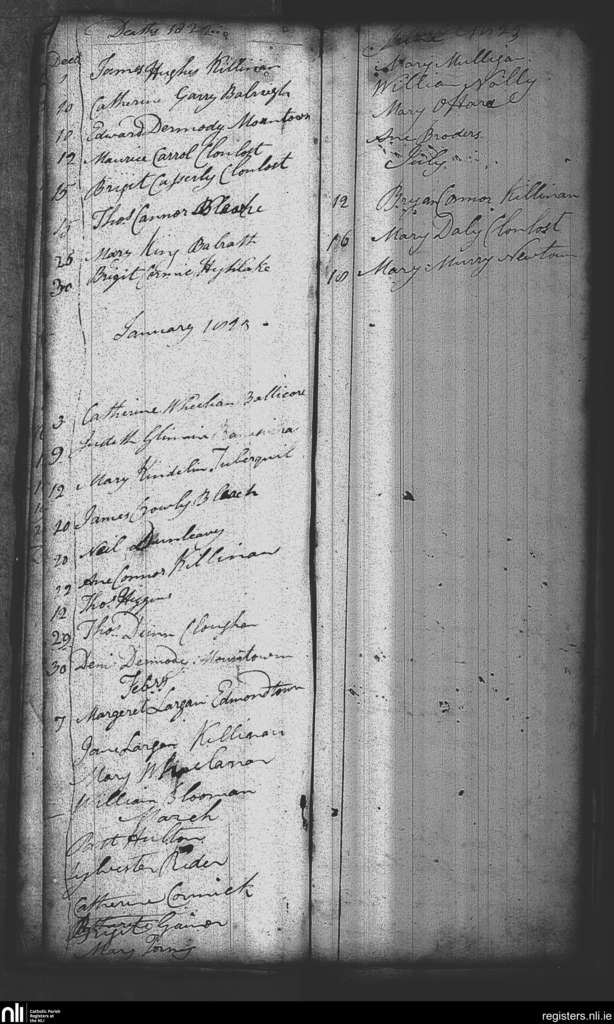 Deaths 182
Decr
1 James Hughes Killinan
10 Catherine Garry Balreigh
10 Edward Dermody Mountown
12 Maurice Carrol Clonlost
15 Briget Casserly Clonlost
15 Thos Cannor
26 Mary King Balrath
30 Brigit Highlake
January
3 Catherine Wheelan Ballicore
9 Judith
12 Mary Kindelin Tuberquil
20 James Crowly Bleach
20 Neil Dunleavy
22 Ane Connor Killinan
12 Thos Higgins
29 Thos Dunn Cloughan
30 Deni Dermody Mountown
Febry
7 Margeret Largan Edmondtown
Jane Largan Killinan
Mary
William Slooman
March
Patt Hulton
Sylvester Rider
Catherine Cormick
Briget Gainor
Mary
Mary Mulligan
William Nolly
Mary O Hara
Ane Broders
July
12 Bryan Connor Killinan
16 Mary Daly Clonlost
18 Mary Murry Newtown
nli
Catholic Parish
Registers at
the NLI
registers.nli.ie